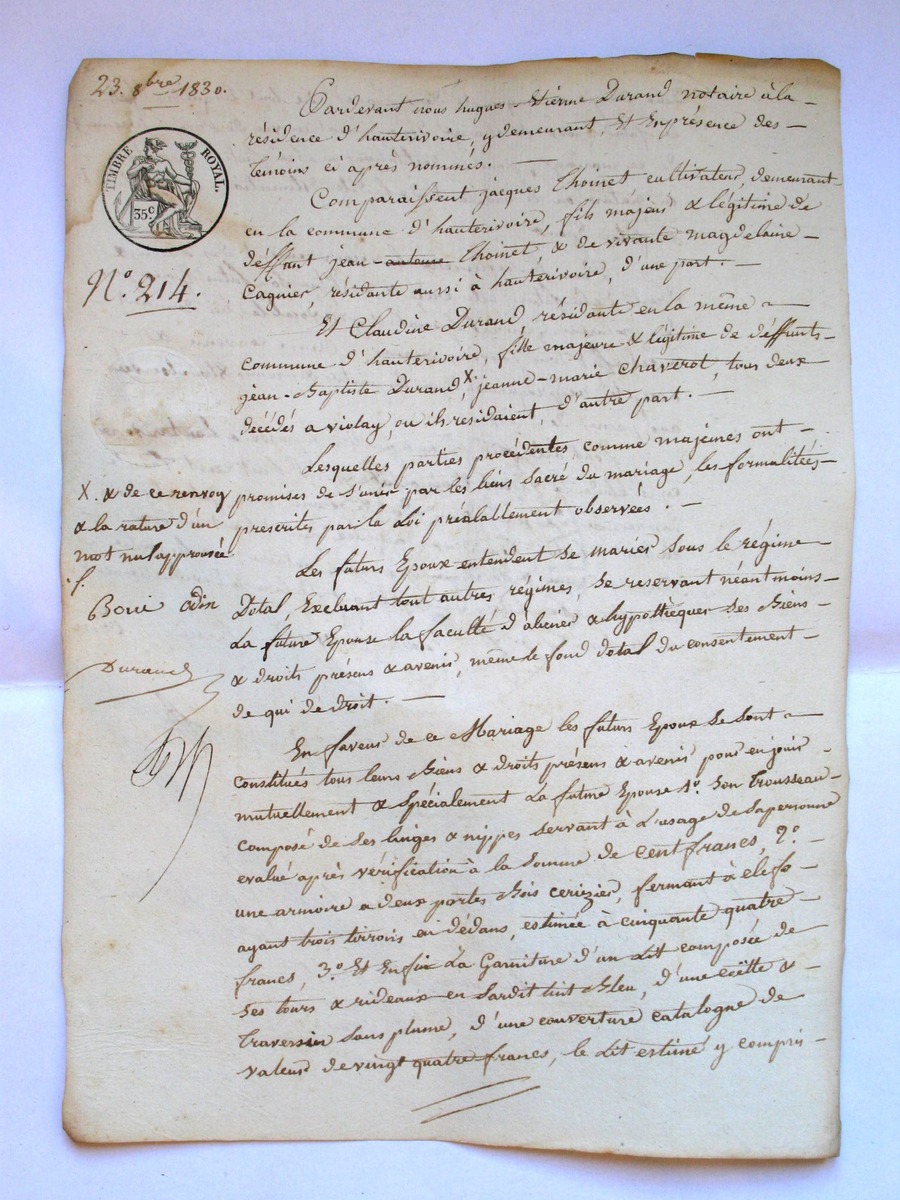 23. 8bre 1830.
TIMBRE ROYAL.
35c
No. 214.
Pardevant nous hugues-Etienne Durand notaire à la -
résidence d'hauterivoire, y demeurant, Et En présence des -
témoins ci après nommés. -
Comparaissent jacques Thoinet cultivateur, demeurant
en la commune d'hauterivoire, fils majeur & légitime de
déffunt jean - antoine Thoinet, & de vivante magdelaine -
Cagnier, résidante aussi à hauterivoire, d'une part. -
Et Claudine Durand résidante en la même -
commune d'hauterivoire, fille majeure & légitime de déffunts -
jean-Baptiste Durand, X. jeanne-marie chaverot, tous deux
décédés a violay, ou ils residaient, d'autre part. -
Lesquelles parties procédentes comme majeures ont -
promises de s'unir par les liens sacré du mariage, les formalitées -
prescrites par la Loi préalablement observées. -
X. & de ce renvoy
& la rature d'un
mot nul approuvée
Les futurs Epoux entendent se marier sous le régime
Dotal, Excluant tout autres régimes, se reservant néant moins -
La future Epouse la faculté d'aliener & hypothèquer ses Biens -
& droits présens & avenir, même le fond dotal du consentement -
de qui de droit. -
Odin
Durand
En faveur de ce Mariage les futurs Epoux se sont -
constitués tous leurs Biens & droits présens & avenir pour en jouir
mutuellement & spécialement La future Epouse 1o. son trousseau -
composé de ses linges & nippes servant à L'usage de sa personne
evalué après vérification à la somme de cent francs, 2o. -
une armoire a deux portes Bois ceriziér, fermant à clef -
ayant trois tirroirs en dédans, estimée à cinquante quatre -
francs, 3o. Et Enfin La Garniture d'un Lit composée de
ses tours & rideaux en Bleu, d'une &
Traversin sans plume, d'une couverture catalogne de -
valeur de vingt quatre francs, le Lit estimé y compris -